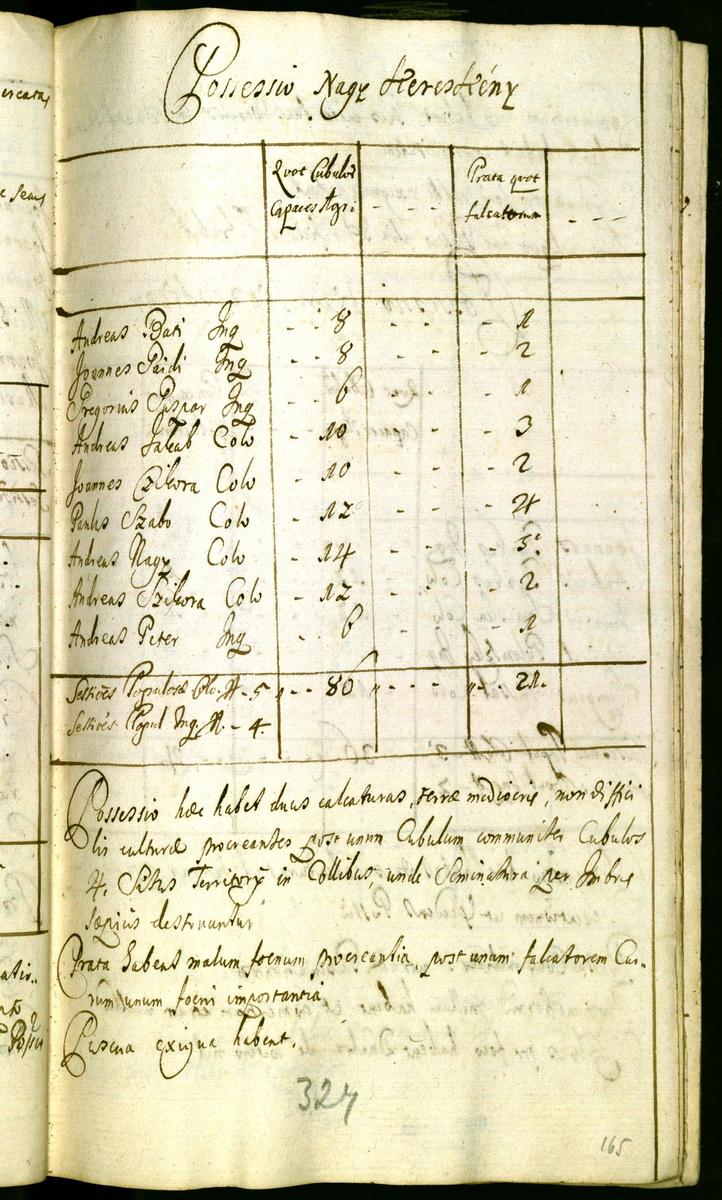 Possessio Nagy Kereskény
Quot Cubulos Prata quot
Capaces Agri - - - falcatorum - - -
Andreas Bati Inq - - 8 - - - 1
Joannes Paidi Inq - - 8 - - - - 2
Gregorius Gaspar Inq - - 6 - - - - 1
Andreas Jakab Colo - 10 - - - - 3
Joannes Czikora Colo - 10 - - - - 2
Paulus Szabo Colo - 12 - - - - 4
Andreas Nagy Colo - 14 - - - - 5
Andreas Czikora Colo - 12 - - - - 2
Andreas Peter Inq - - 6 - - - - 1
Sessiões Populosæ Clo. N. - 5 - - 80 - - - - - 21.
Sessiões Popul Inq. N. - 4.
Possessio hæc habet duas calcaturas, terræ mediocris, non diffici
lis culturæ procreantes post unum Cubulum communiter Cubulos
4. Situs Territorÿ in Collibus, unde Seminatura per Imbres
sæpius destruuntur
Prata habent malum foenum procreantia, post unum falcatorem Cur-
rum unum foeni importantia
Pascua exigua habent.
327
165